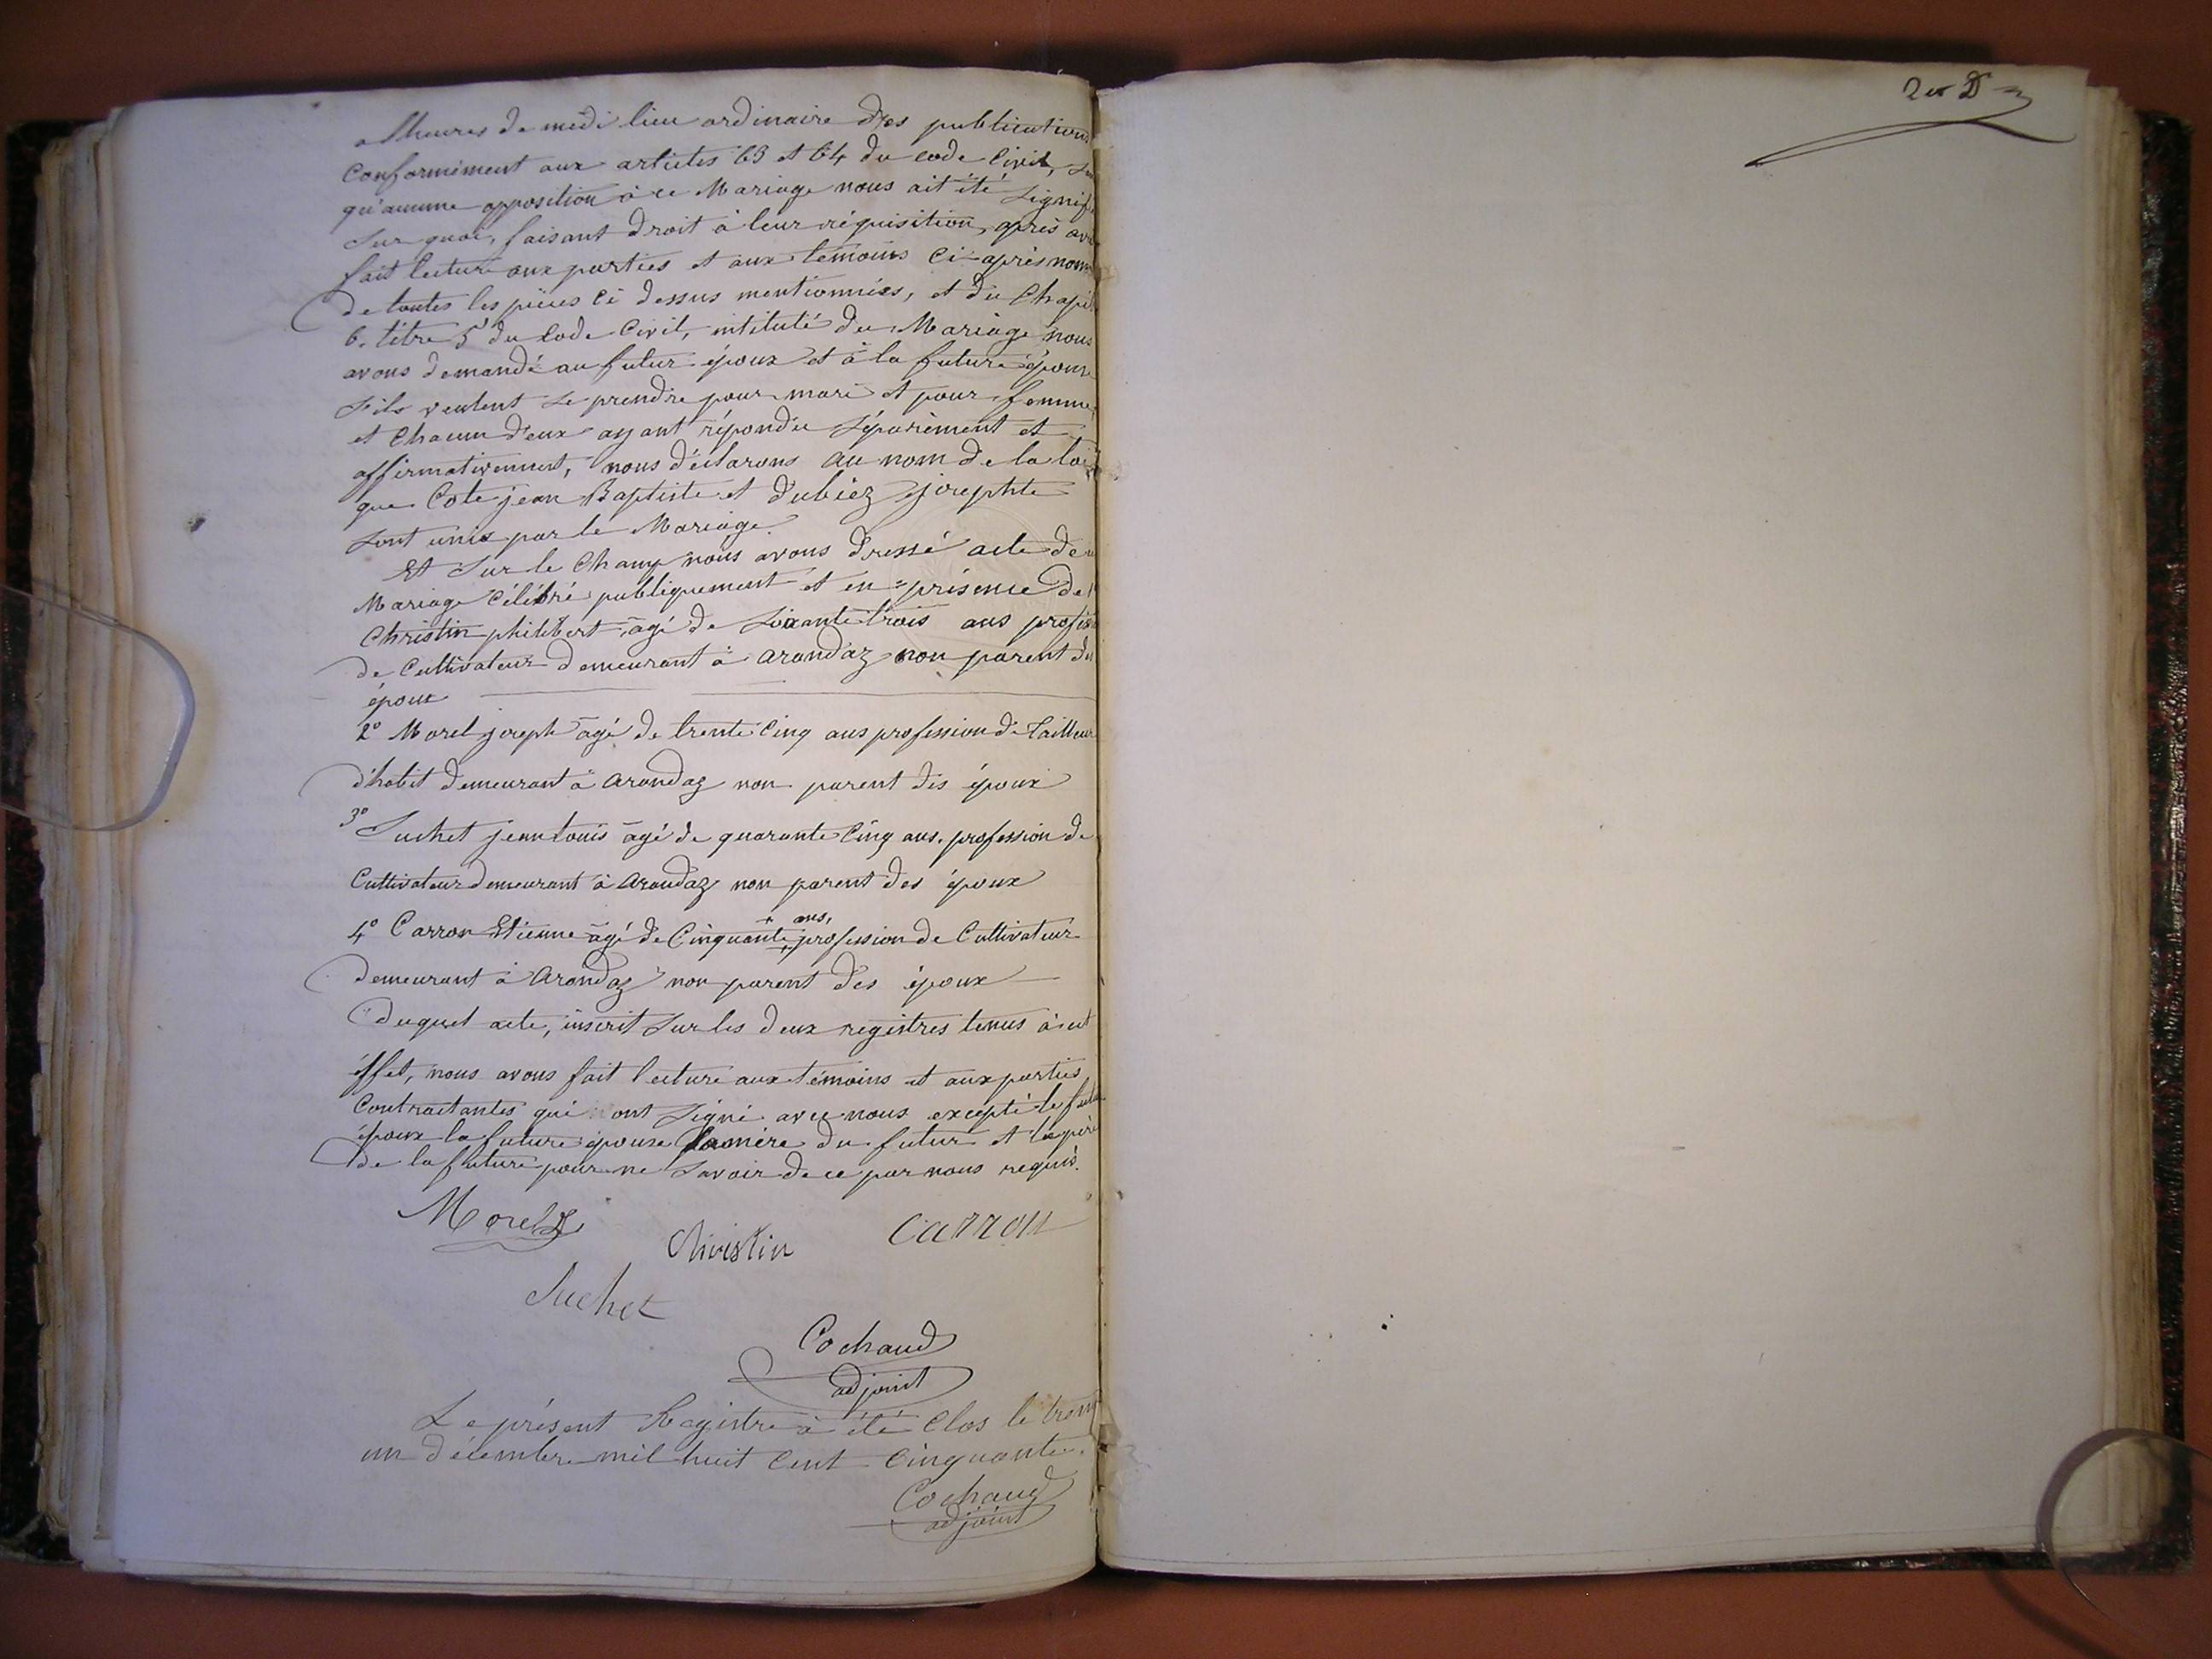 a lheures de midi lieu ordinaire des publications
Conformément aux articles 63 et 64 du code Civil,
qu'aucune opposition à ce Mariage nous ait été signif
Sur quoi, faisant droit à leur réquisition, après avo
fait lecture aux parties et aux témoins Ci-après nom
de toutes les pièces Ci dessus mentionnées, et du Chapi
6. titre 5 du Code Civil, intitulé du Mariage nous
avons demandé au futur époux et à la future épouse
s'ils veulent se prendre pour mari et pour femme,
et Chacun d'eux ayant répondu séparément et
affirmativement, nous déclarons au nom de la loi
que Cote jean Baptiste et Dubiez josephte
sont unis par le Mariage.
Et Sur le Champ nous avons dressé acte de
Mariage Célébré publiquement et en présence de
Christin philibert, âgé de Soixante trois ans profes
de Cultivateur demeurant à arandaz non parent des
époux
2° Morel joseph âgé de trente Cinq ans profession de Tailleur
d'habit demeurant à arandaz non parent des époux
3° Suchet jean Louis âgé de quarante Cinq ans. profession de
Cultivateur demeurant à arandaz non parent des époux
4° Carron Etienne âgé de Cinquante + ans, profession de Cultivateur
demeurant à arandaz non parent des époux
Duquel acte, inscrit Sur les deux registres tenus à cet
éffet, nous avons fait lecture aux témoins et aux parties
Contractantes qui ont Signé avec nous excepté le futur
époux la future épouse la mère du futur et le père
de la future pour ne Savoir de ce par nous requis.
Morel J
Christin
Carron
Suchet
Cochaud
adjoint
Le présent Registre à été Clos le trent
un décembre mil huit Cent Cinquante.
Cochaud
adjoint